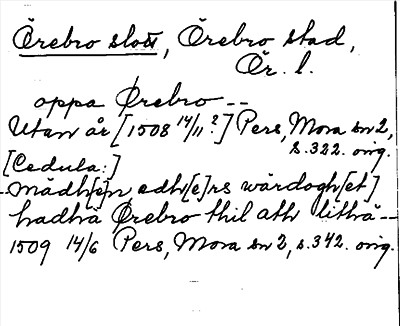 Örebro slott, Örebro stad,
Ör. l.
oppa Ørebro --
Utan år [1508 14/11 ?] Pers, Mora sn 2,
s. 322. orig.
[Cedula:]
- mädh[e]n edh[e]rs wärdogh[et]
hadhä Ørebro thil ath lithä --
1509 14/6 Pers, Mora sn 2, s. 342. orig.